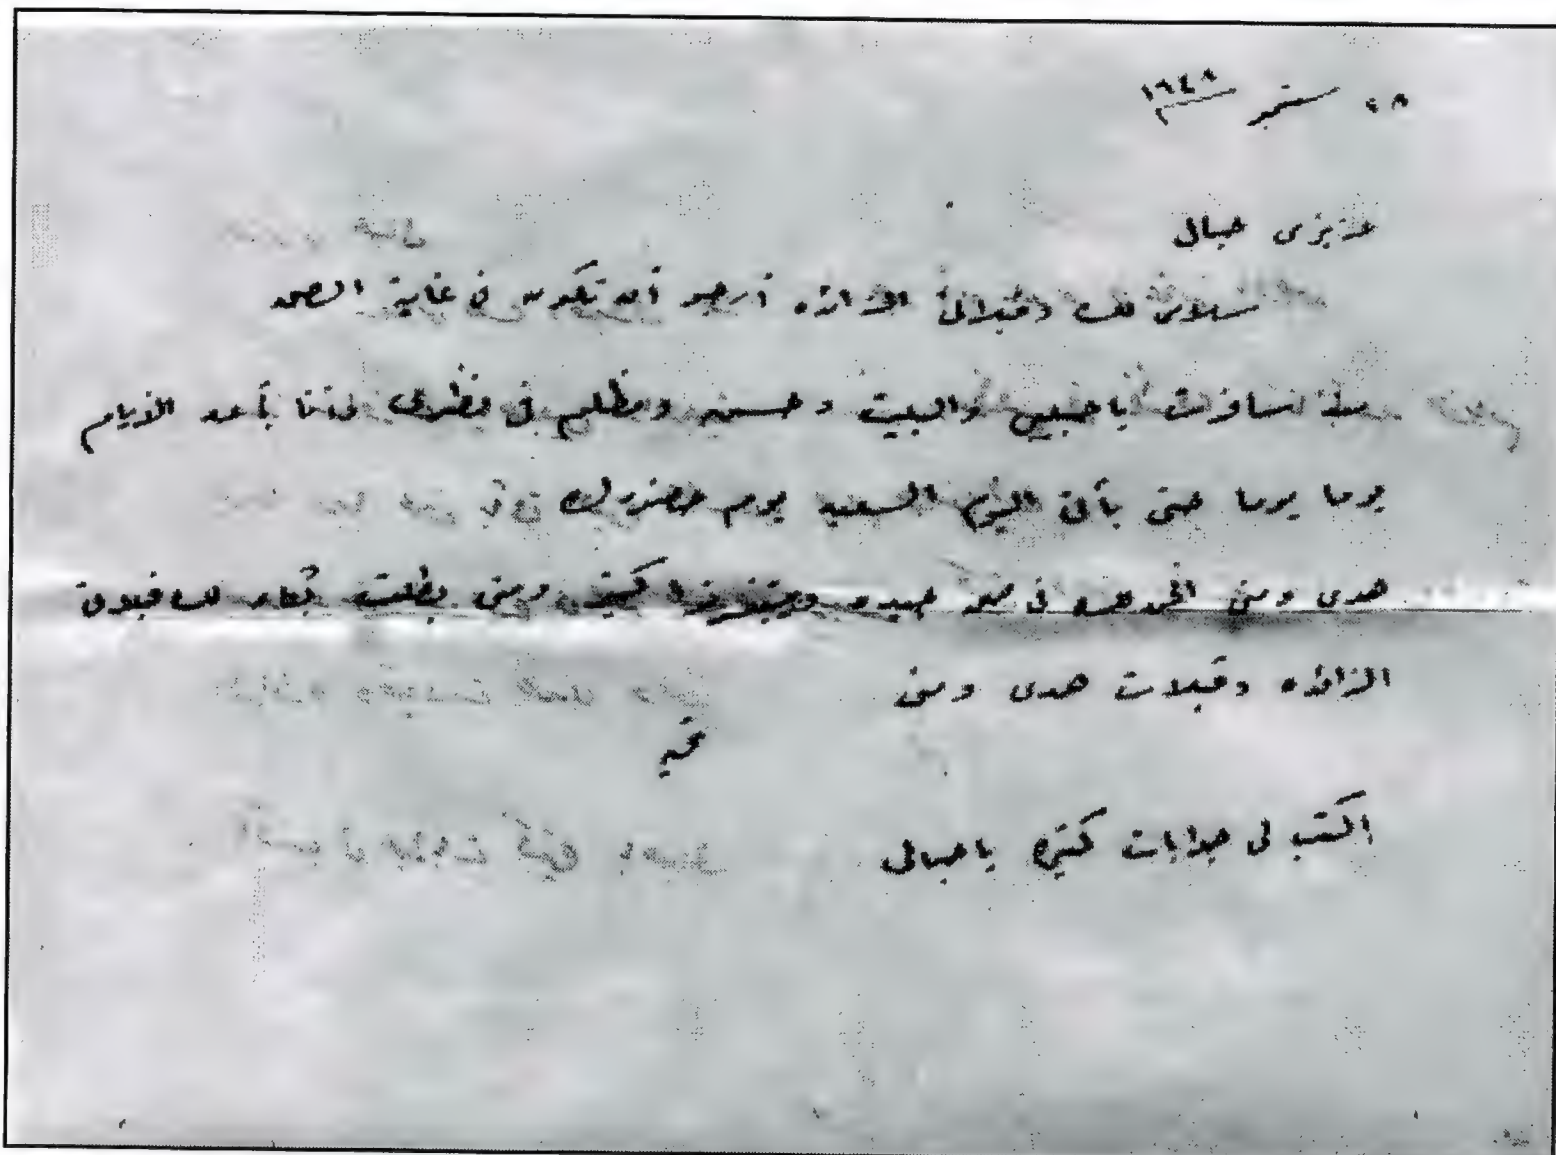 ٢٨ سبتمبر ١٩٤٨
عزيزى جمال
سلامى لك وقبلاتى الزائده أرجو أن تكون فى غاية الصحه
منذ سافرت يا حبيبى والبيت وحش ومظلم فى نظرى وأنا بأعد الأيام
يوما يوما حتى يأتى اليوم السعيد يوم حضورك
هدى ومنى الحمد لله فى صحه جيده كتير ومنى بطلت لك قبلاتى
الزائده وقبلات هدى ومنى
تحيه
اكتب لى جوابات كتيره يا جمالى